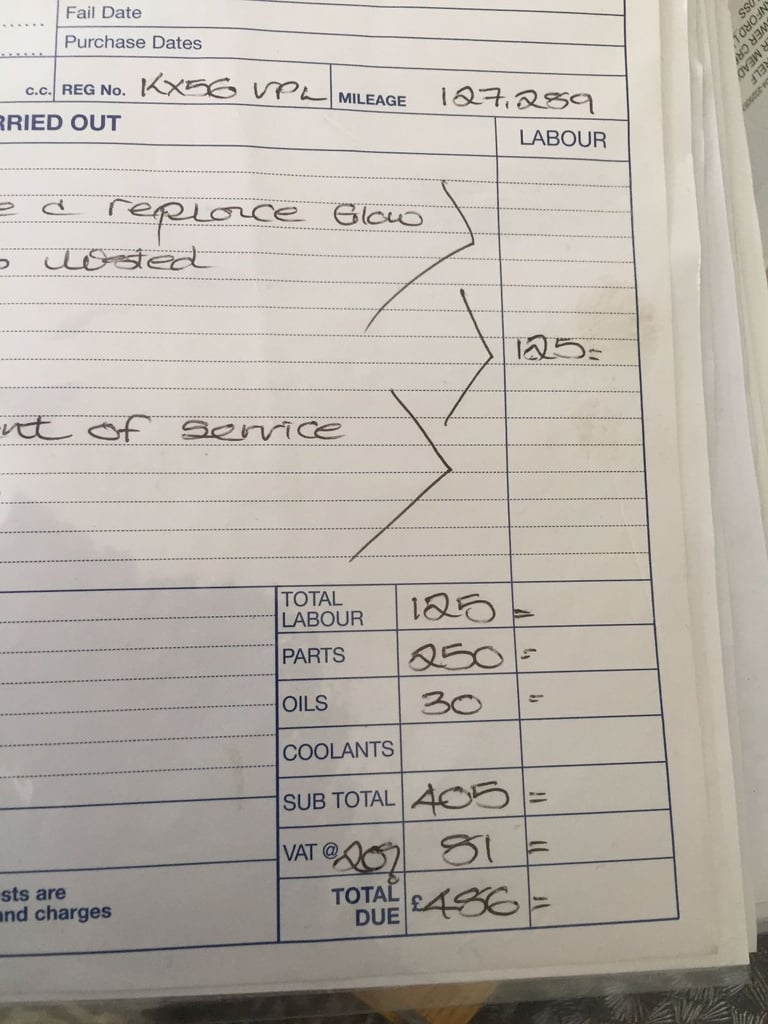 Fail Date
Purchase Dates
c.c. REG No. KX56 VPL MILEAGE 127,289
RRIED OUT LABOUR
e & replace Glow
125=
nt of service
TOTAL LABOUR 125 =
PARTS 250 =
OILS 30 =
COOLANTS
SUB TOTAL 405 =
VAT @ 20% 81 =
sts are
nd charges
TOTAL DUE £486 =